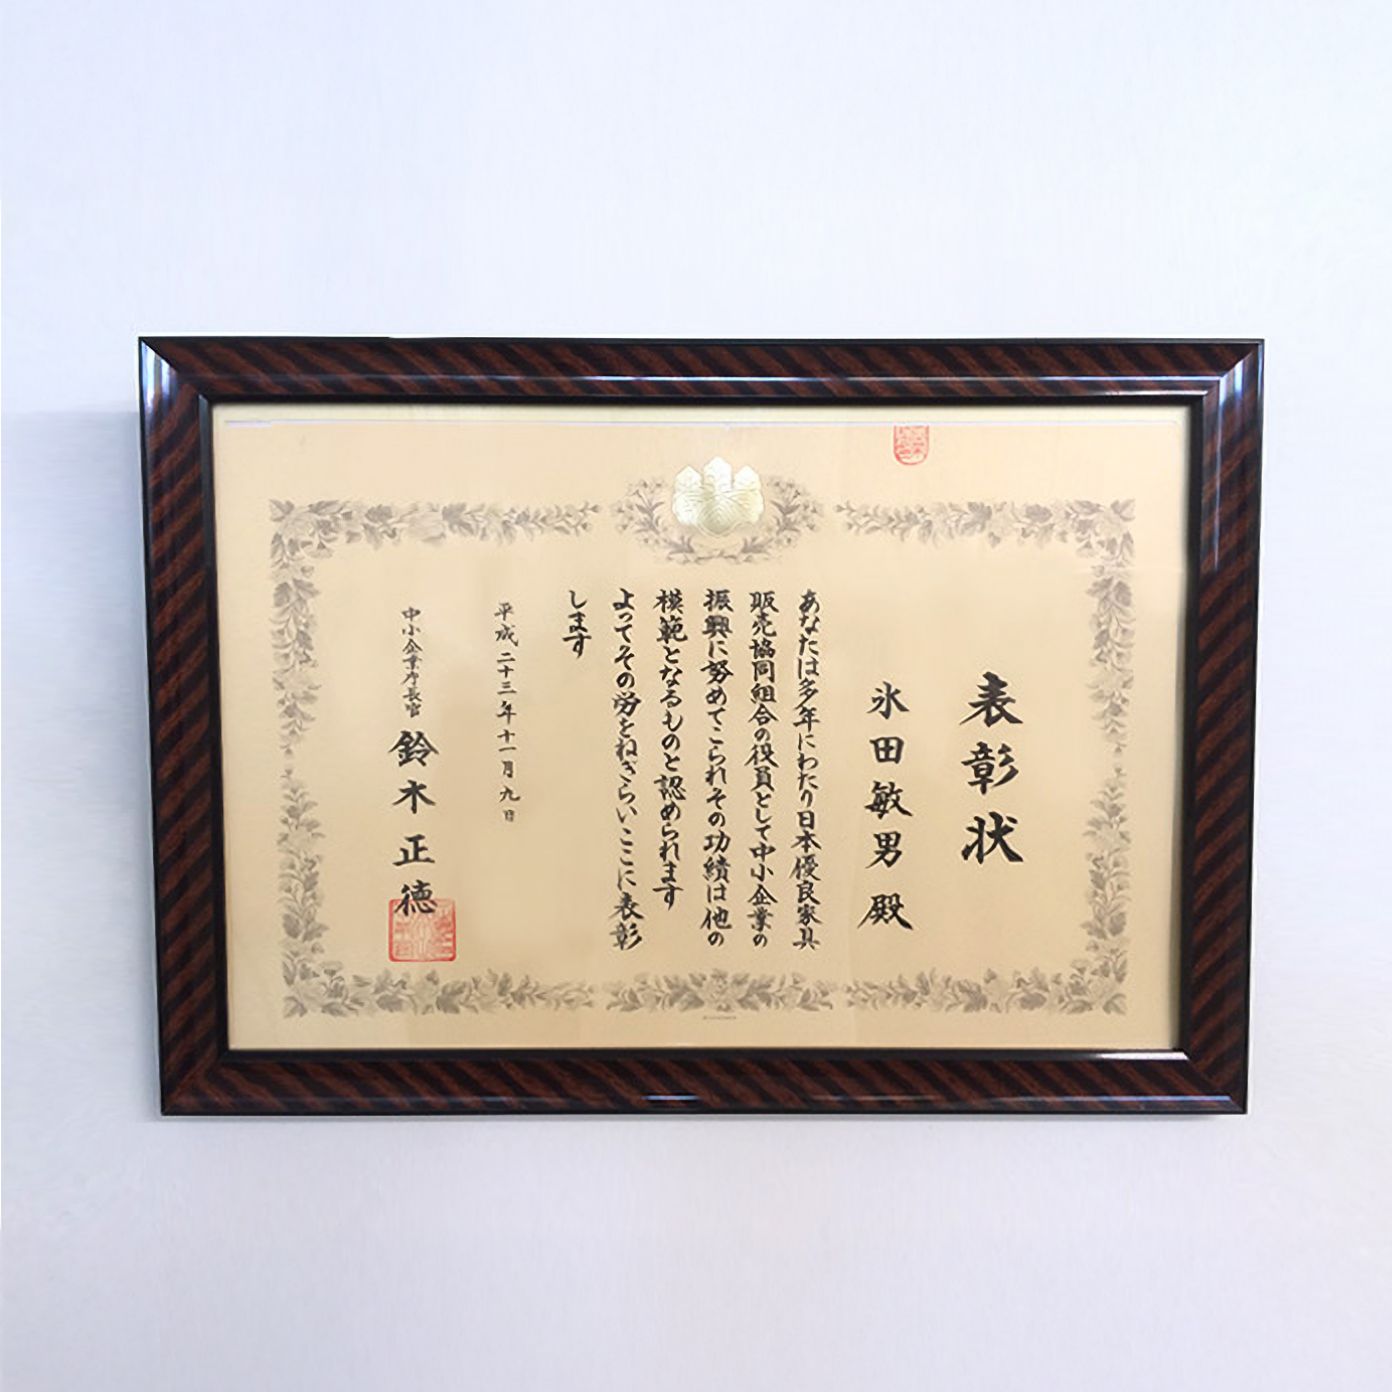 表彰状
氷田敏男殿
あなたは多年にわたり日本優良家具
販売協同組合の役員として中小企業の
振興に努めてこられその功績は他の
模範となるものと認められます
よってその労をねぎらいここに表彰
します
平成二十三年十一月九日
中小企業庁長官 鈴木正徳